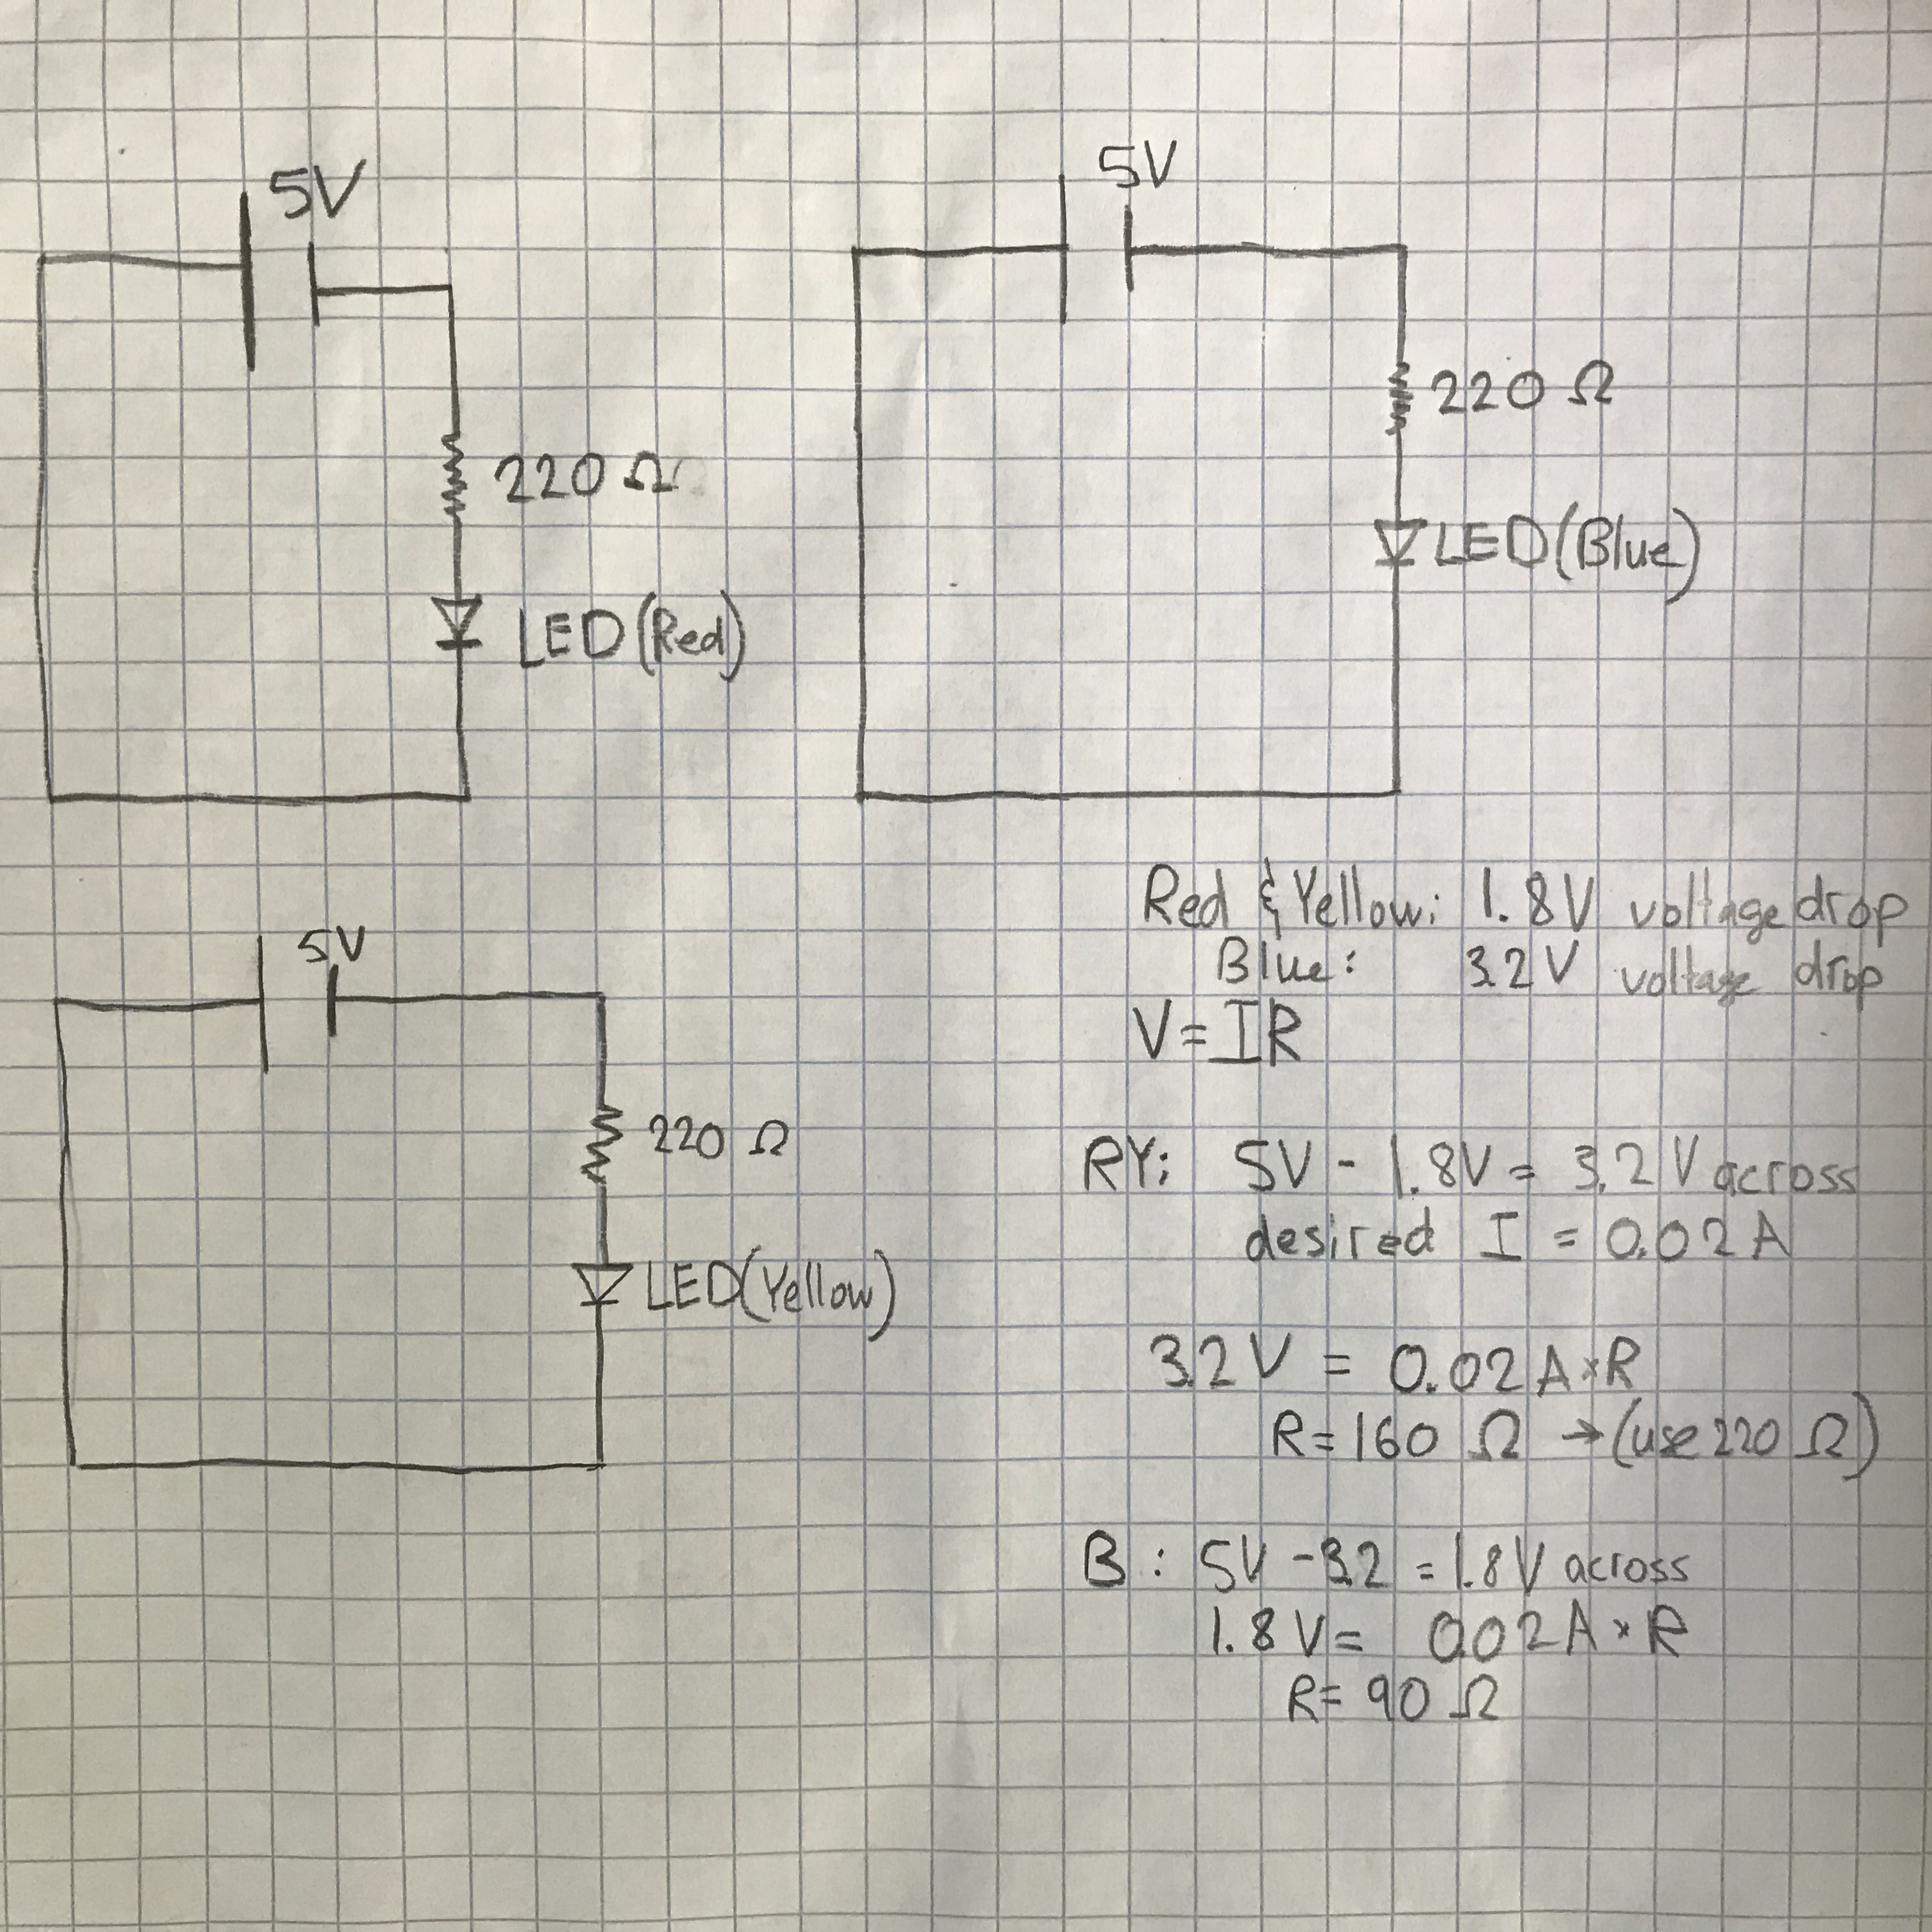 5V
220 Ω
LED (Red)
5V
220 Ω
LED (Blue)
5V
220 Ω
LED (Yellow)
Red & Yellow: 1.8V voltage drop
Blue: 3.2V voltage drop
V = IR
RY: 5V - 1.8V = 3.2V across
desired I = 0.02 A
3.2V = 0.02 A × R
R = 160 Ω → (use 220 Ω)
B: 5V - 3.2 = 1.8V across
1.8V = 0.02 A × R
R = 90 Ω